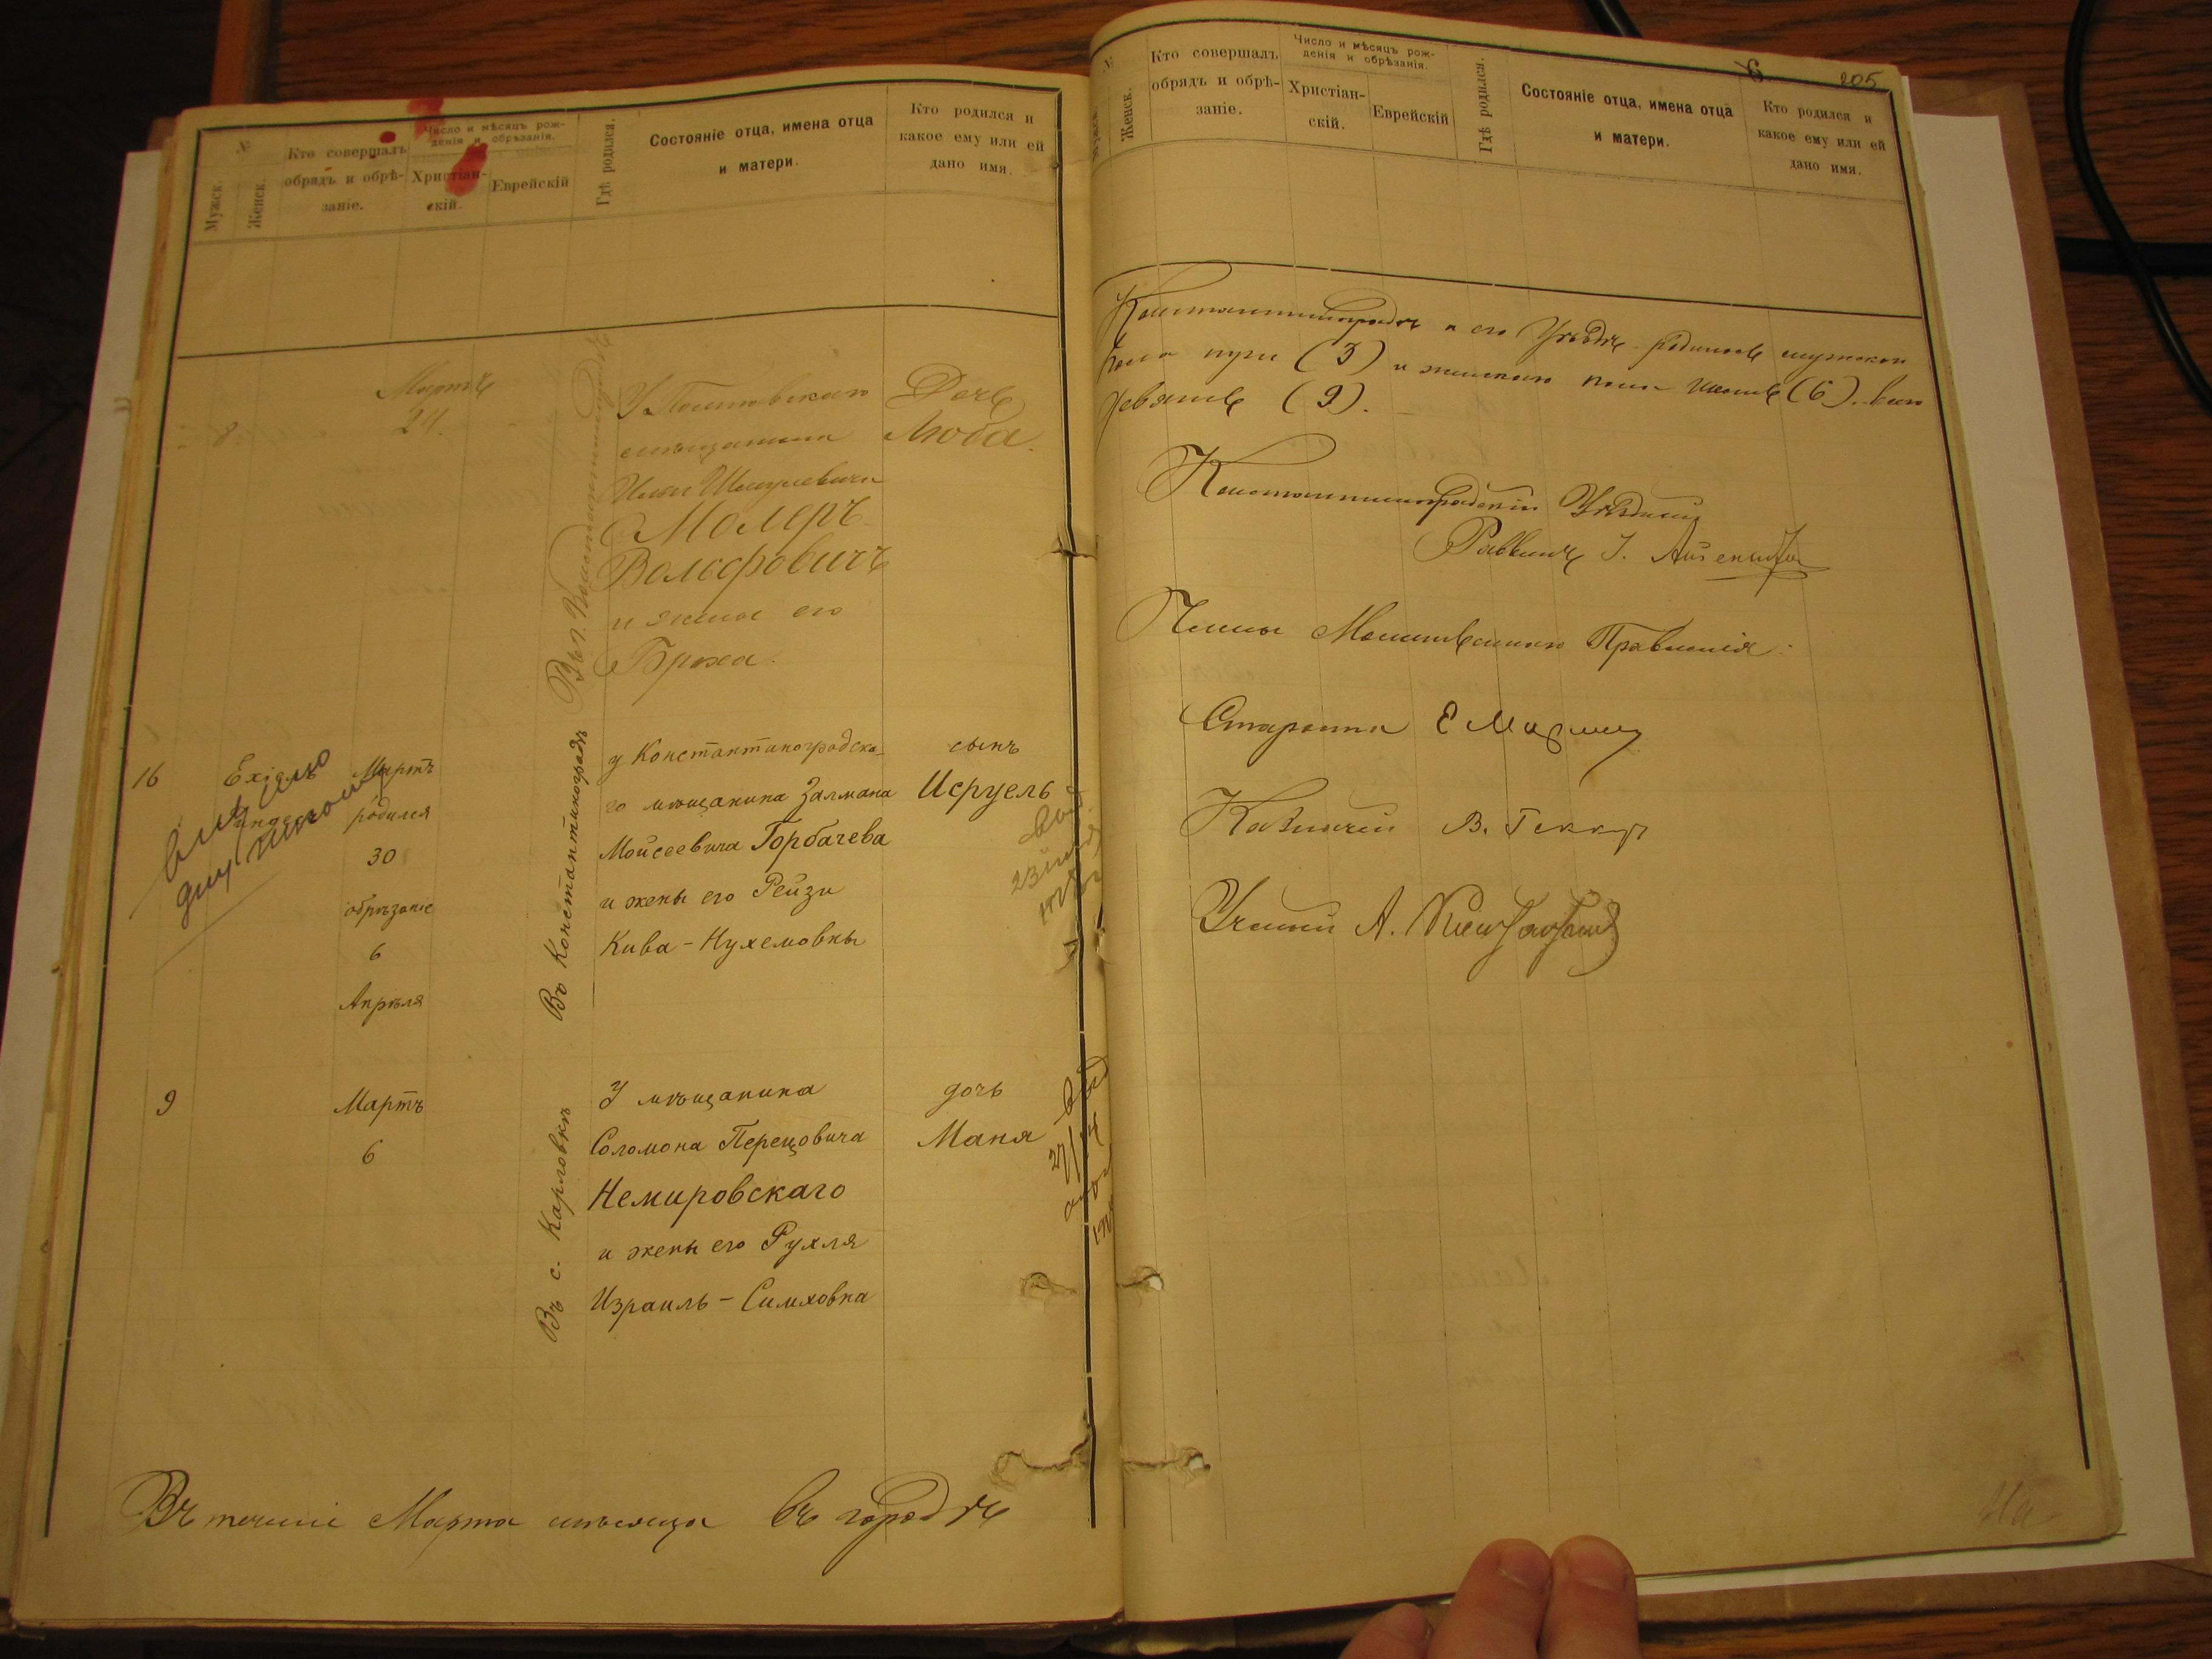 №
Мужск.
Женск.
Кто совершалъ
обрядъ и обрѣ-
заніе.
Число и мѣсяцъ рож-
денія и обрѣзанія.
Христіан-
скій.
Еврейскій
Гдѣ родился.
Состояніе отца, имена отца
и матери.
Кто родился и
какое ему или ей
дано имя.
8
Мартъ
24.
Въ г. Константиноградѣ
У
мѣщанина
Молеръ
Вольфовичъ
и жены его
Дочь
Люба.
16
Ехіель
Мартъ
родился
30
обрѣзаніе
6
Апрѣля
Въ Константиноградѣ
у Константиноградска-
го мѣщанина Залмана
Мойсеевича Горбачева
и жены его Рейзи
Кива-Нухемовны
сынъ
Исруель
9
Мартъ
6
Въ с. Карловкѣ
У мѣщанина
Соломона Перецовича
Немировскаго
и жены его Рухля
Израиль-Симховна
дочь
Маня
Въ теченіе Марта мѣсяца въ городѣ
№
Мужск.
Женск.
Кто совершалъ
обрядъ и обрѣ-
заніе.
Число и мѣсяцъ рож-
денія и обрѣзанія.
Христіан-
скій.
Еврейскій
Гдѣ родился.
Состояніе отца, имена отца
и матери.
Кто родился и
какое ему или ей
дано имя.
6
205
Константиноградѣ и его Уѣздѣ родилось мужского
пола три (3) и женского пола шесть (6). всего
девять (9).
Константиноградскій Уѣздный
Раввинъ
Члены Молитвеннаго Правленія:
Староста Е
Казначей В. Геккер
Ученый А.